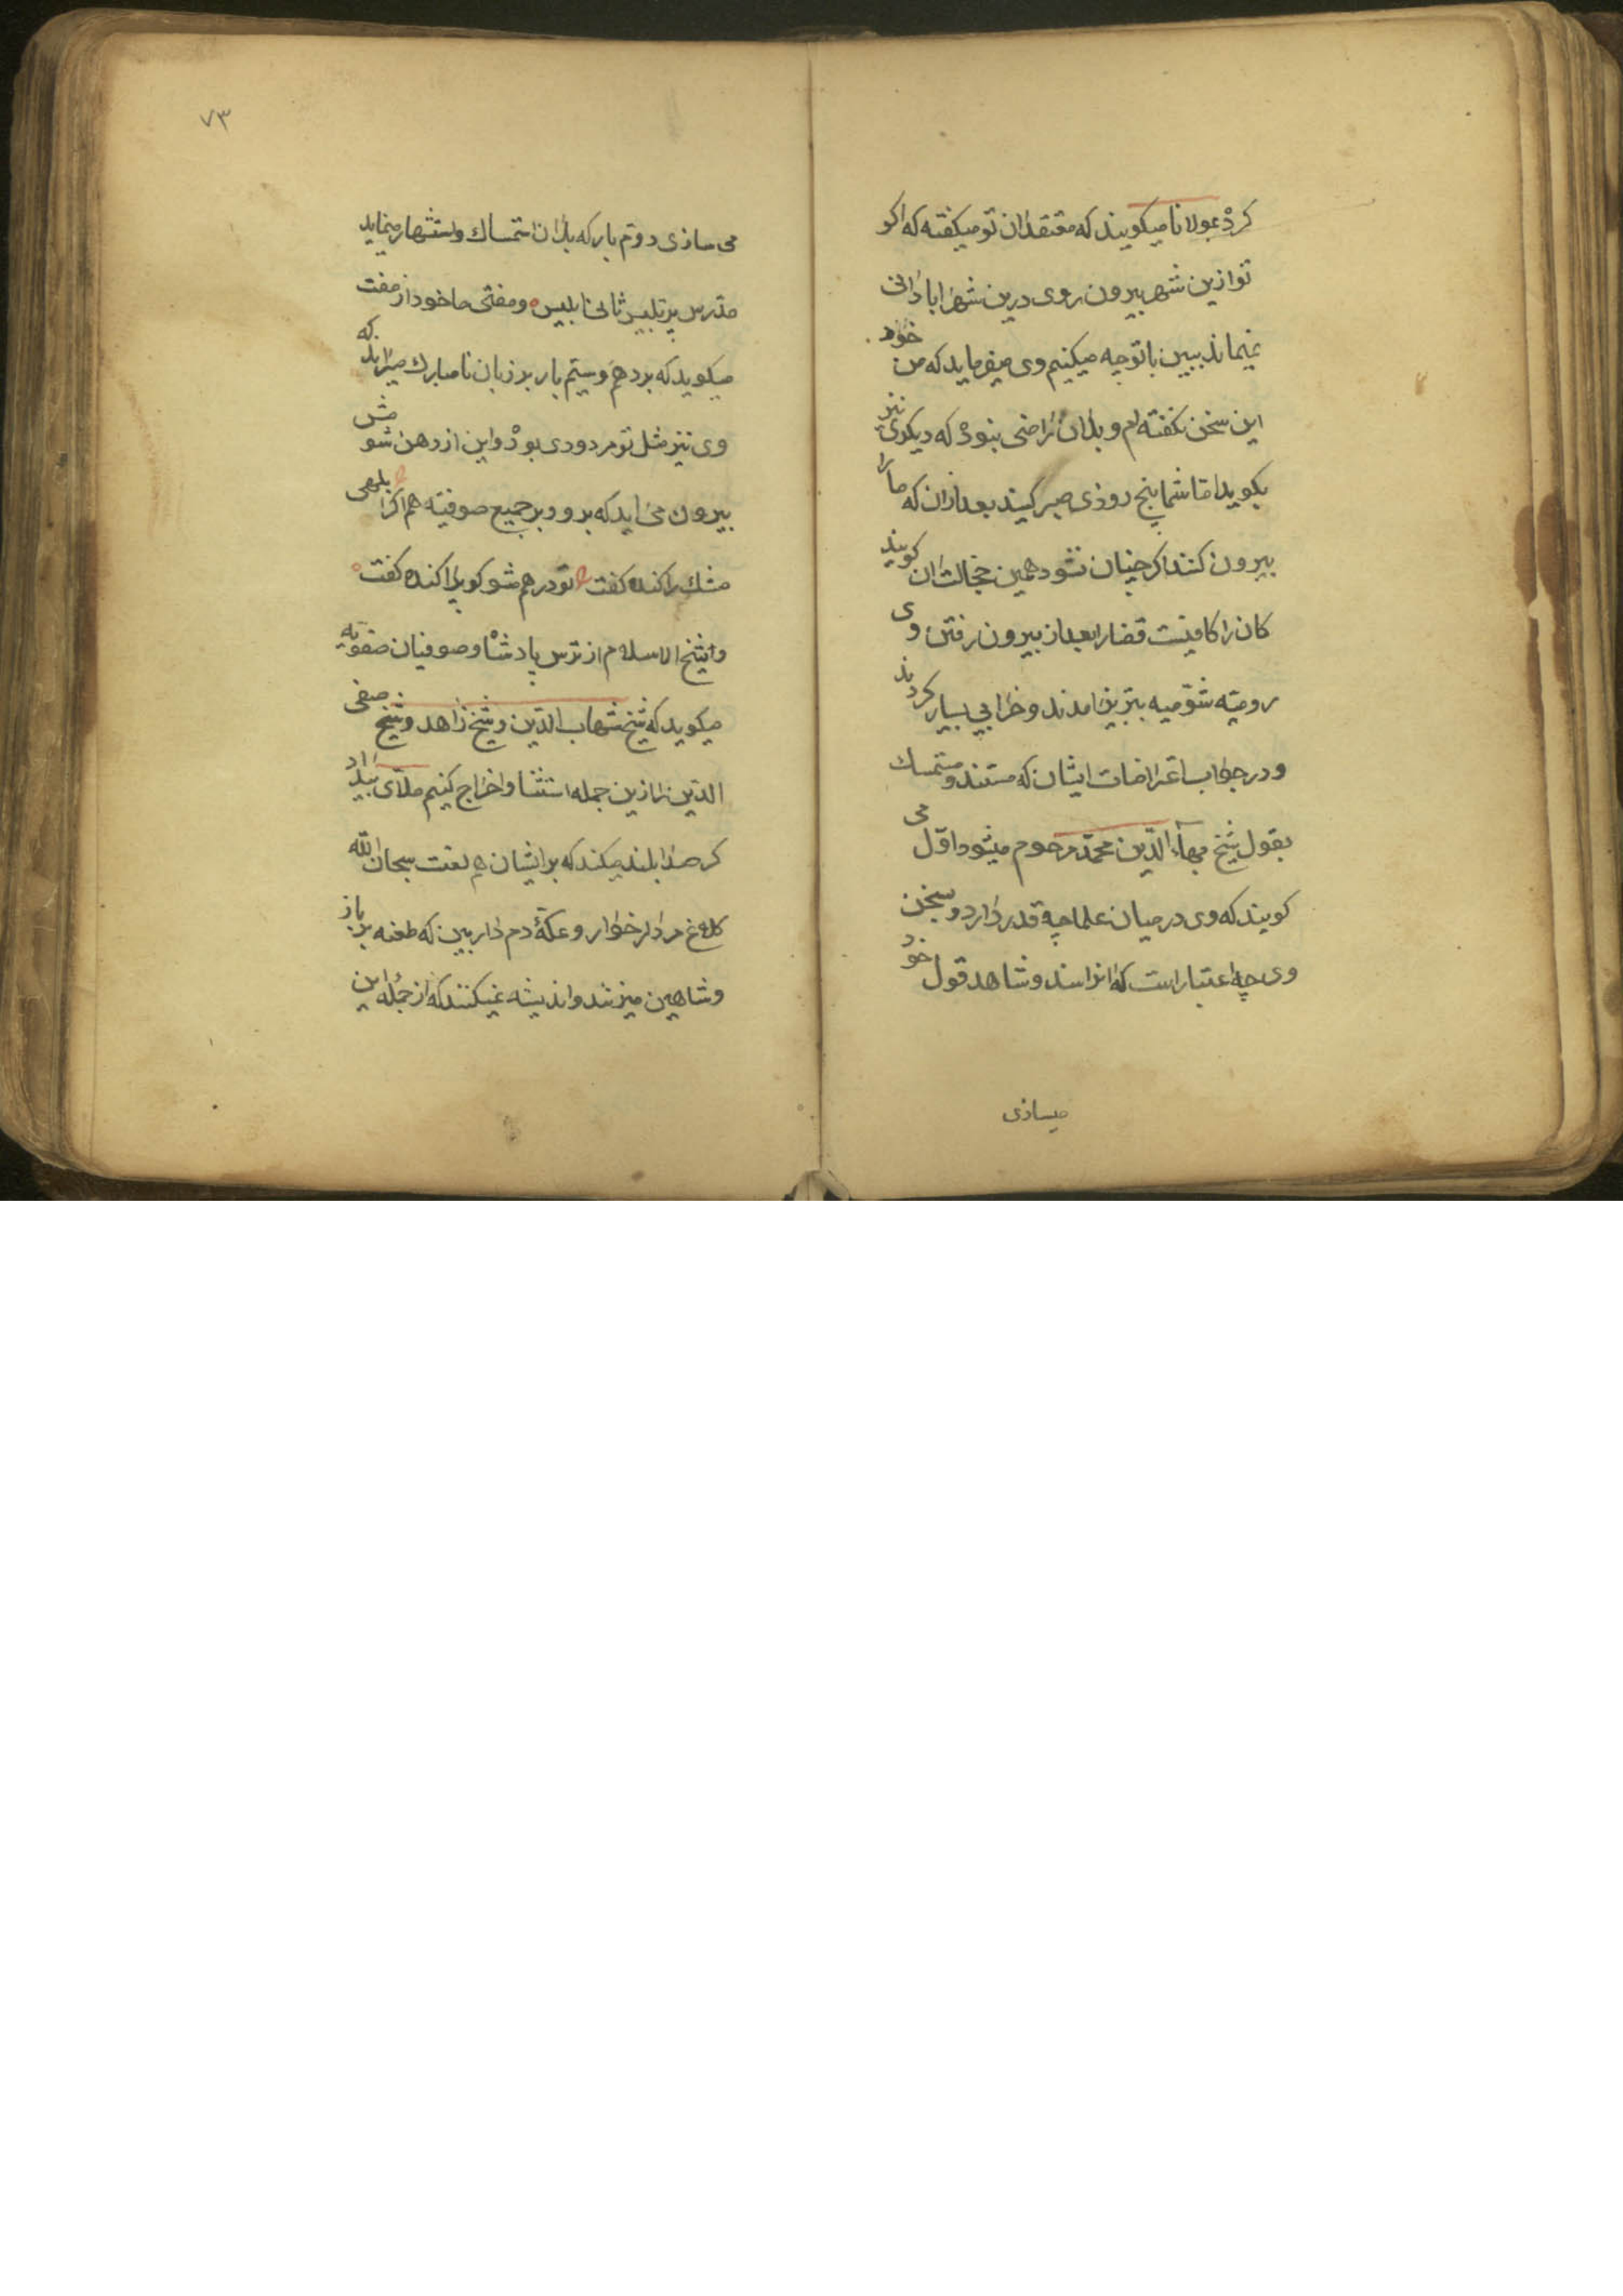 کرد بمولانا میکویند که معتقدان تو میکفته که اکر
توازین شهر بیرون روی درین شهر ابادانی
نمیماند ببین باتو چه میکنیم وی میفرماید که من خود
این سخن نکفته ام و بدان راضی نبود که دیکری نیز
بکوید اما شما پنج روزی صبر کنید بعدازان که مارا
بیرون کنند اکر چنان نشود همین خجالت ان کویند
کان را کافیست قضارا بعد از بیرون رفتن وی
رومیه شومیه بتبریز امدند و خرابی بسیار کردند
و در جواب اعتراضات ایشان که مستند و متمسک
بقول شیخ بهاء الدین محمد مرحوم میشود اول می
کویند که وی در میان علما چه قدر دارد و سخن
وی چه اعتبار است که انرا سند و شاهد قول خود
میسازی
۷۳
می سازی دوم بار که بدان استمساک و استشهار مینماید
مدرس پر تلبیس ثانی ابلیس و مفتی ماخود از مفت
میکوید که بر دهم و ستم بار بر زبان نامبارک میراند که
وی نیز مثل تو مردودی بود و این از دهن شومش
بیرون می اید که برو و بر جمیع صوفیه هم اکر ابلهی
مشک را کنده کفت تو درهم مشو کو پراکنده کفت
و شیخ الاسلام از ترس پادشاه و صوفیان صفویه
میکوید که شیخ شهاب الدین و شیخ زاهد و شیخ صفی
الدین را ازین جمله استثنا و اخراج کنیم ملای بیداد
کر صدا بلند میکند که بر ایشان هم لعنت سبحان الله
کلاغ مردار خوار و عکهٔ دم دار بین که طعنه بر باز
و شاهین میزنند و اندیشه نمیکنند که از جمله این